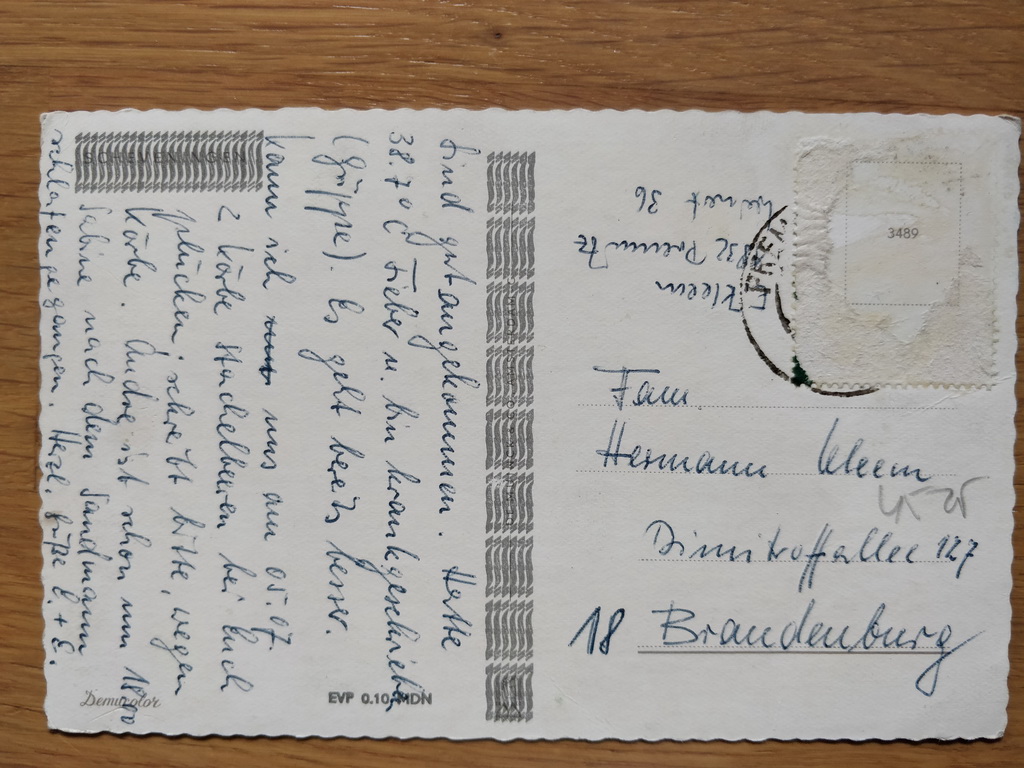 sind gut angekommen. Hatte
38.7°C Fieber u. bin krankgeschrieben
(Grippe). Es geht bereits besser.
Kann ich uns am 05.07.
2 Körbe Stachelbeeren bei Euch
pflücken. schreibt bitte, wegen
Körbe. Andre ist schon um 18 00
Sabine nach dem Sandmann
schlafengegangen. Herzl. Grüße
SCHEVENINGEN
Demucolor
EVP 0.10 MDN
Kleem
1832 Premnitz
36
3489
Fam.
Hermann Kleem
Dimitroffallee 127
18 Brandenburg